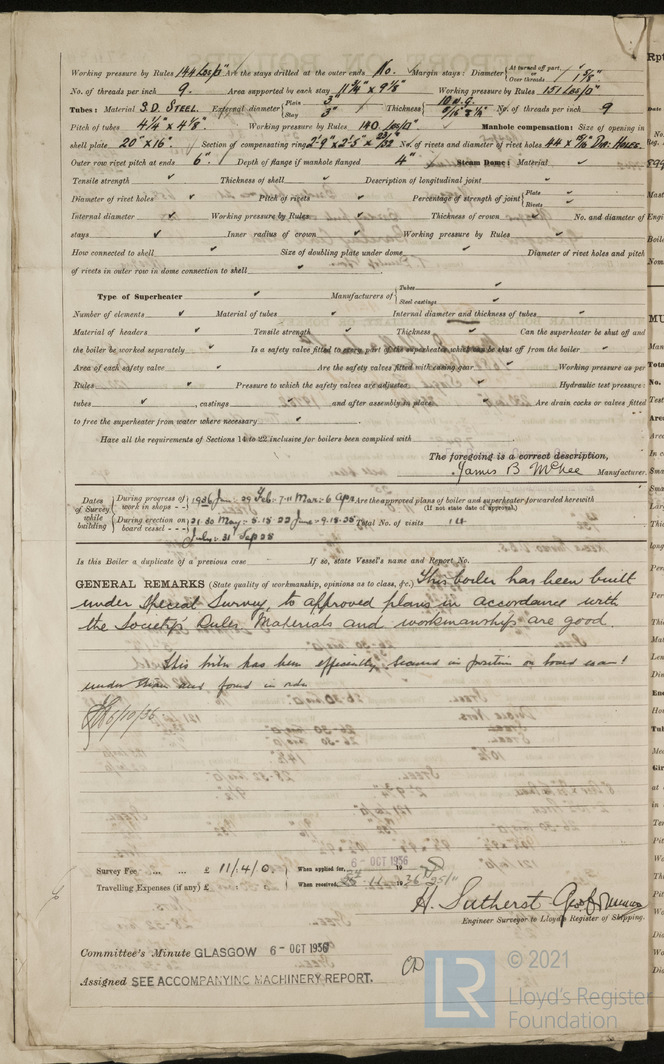 Working pressure by Rules 144 Lbs/□" Are the stays drilled at the outer ends No. Margin stays: Diameter { At turned off part, or Over threads 1 5/8"
No. of threads per inch 9. Area supported by each stay 11 3/4" × 9 1/8" Working pressure by Rules 151 Lbs/□"
Tubes: Material S.D. STEEL. External diameter { Plain 3" Stay 3" Thickness { 10 W.G. 5/16" & 1/4" No. of threads per inch 9
Pitch of tubes 4 1/4" × 4 1/8". Working pressure by Rules 140 Lbs/□" Manhole compensation: Size of opening in
shell plate 20" × 16". Section of compensating ring 2'-9" × 2'-5" × 23/32" No. of rivets and diameter of rivet holes 44 × 15/16" Dia: Holes.
Outer row rivet pitch at ends 6". Depth of flange if manhole flanged 4" Steam Dome: Material
Tensile strength Thickness of shell Description of longitudinal joint
Diameter of rivet holes Pitch of rivets Percentage of strength of joint { Plate Rivets
Internal diameter Working pressure by Rules Thickness of crown No. and diameter of
stays Inner radius of crown Working pressure by Rules
How connected to shell Size of doubling plate under dome Diameter of rivet holes and pitch
of rivets in outer row in dome connection to shell
Type of Superheater Manufacturers of { Tubes Steel castings
Number of elements Material of tubes Internal diameter and thickness of tubes
Material of headers Tensile strength Thickness Can the superheater be shut off and
the boiler be worked separately Is a safety valve fitted to every part of the superheater which can be shut off from the boiler
Area of each safety valve Are the safety valves fitted with easing gear Working pressure as per
Rules Pressure to which the safety valves are adjusted Hydraulic test pressure:
tubes castings and after assembly in place Are drain cocks or valves fitted
to free the superheater from water where necessary
Have all the requirements of Sections 14 to 22 inclusive for boilers been complied with
The foregoing is a correct description,
James B McKee Manufacturer.
Dates of Survey while building { During progress of work in shops - - 1936 Jan: 29 Feb: 7-11 Mar: 6 Apr Are the approved plans of boiler and superheater forwarded herewith
(If not state date of approval.)
During erection on board vessel - - - 21.30 May: 5.15.22 June: 9.15.25 Total No. of visits 14
July: 31 Sep 25
Is this Boiler a duplicate of a previous case If so, state Vessel's name and Report No.
GENERAL REMARKS (State quality of workmanship, opinions as to class, &c.) This boiler has been built
under Special Survey, to approved plans in accordance with
the Society's Rules, Materials and workmanship are good.
This boiler has been efficiently secured in position on board
under steam and found in order
6/10/36
Survey Fee ... ... £ 11/4/0 When applied for, 6 - OCT 1936
Travelling Expenses (if any) £ When received,
H. Sutherst
Engineer Surveyor to Lloyd's Register of Shipping.
Committee's Minute GLASGOW 6 - OCT 1936
Assigned SEE ACCOMPANYING MACHINERY REPORT.
LR © 2021
Lloyd's Register
Foundation